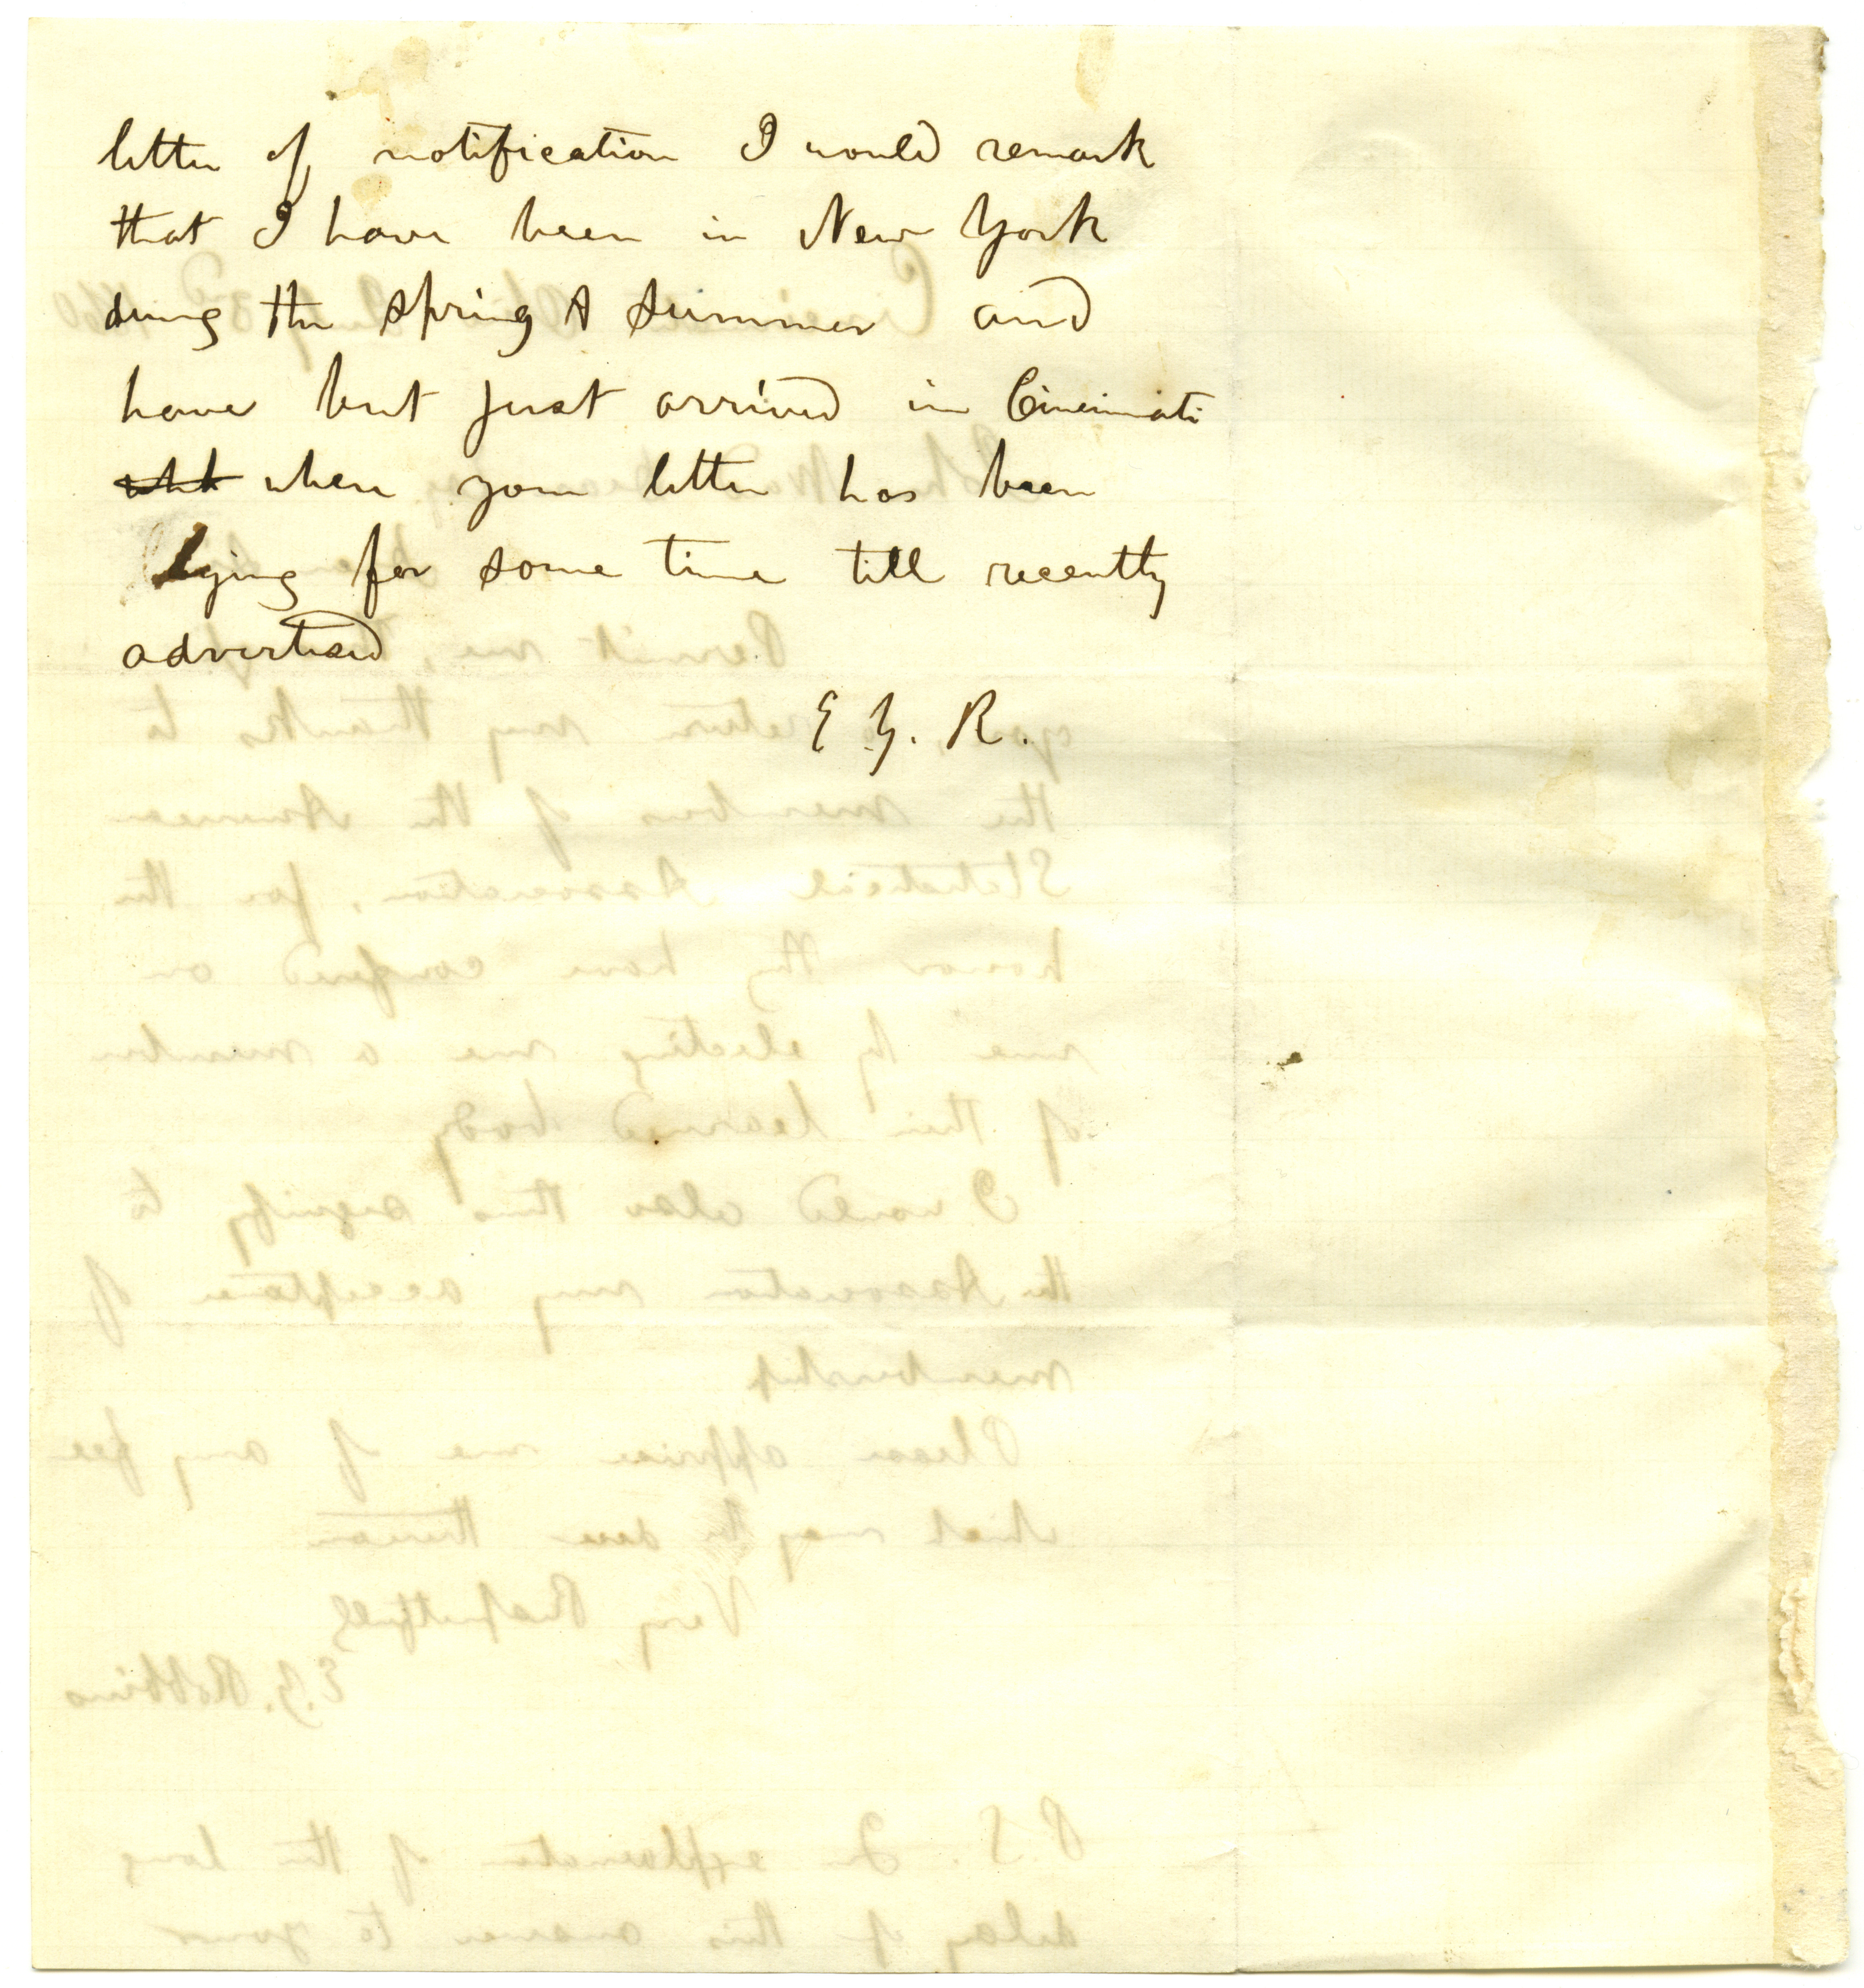 letter of notification I would remark
that I have been in New York
during the spring & summer and
have but just arrived in Cincinnati
where your letter has been
lying for some time till recently
advertised
E Y. R.